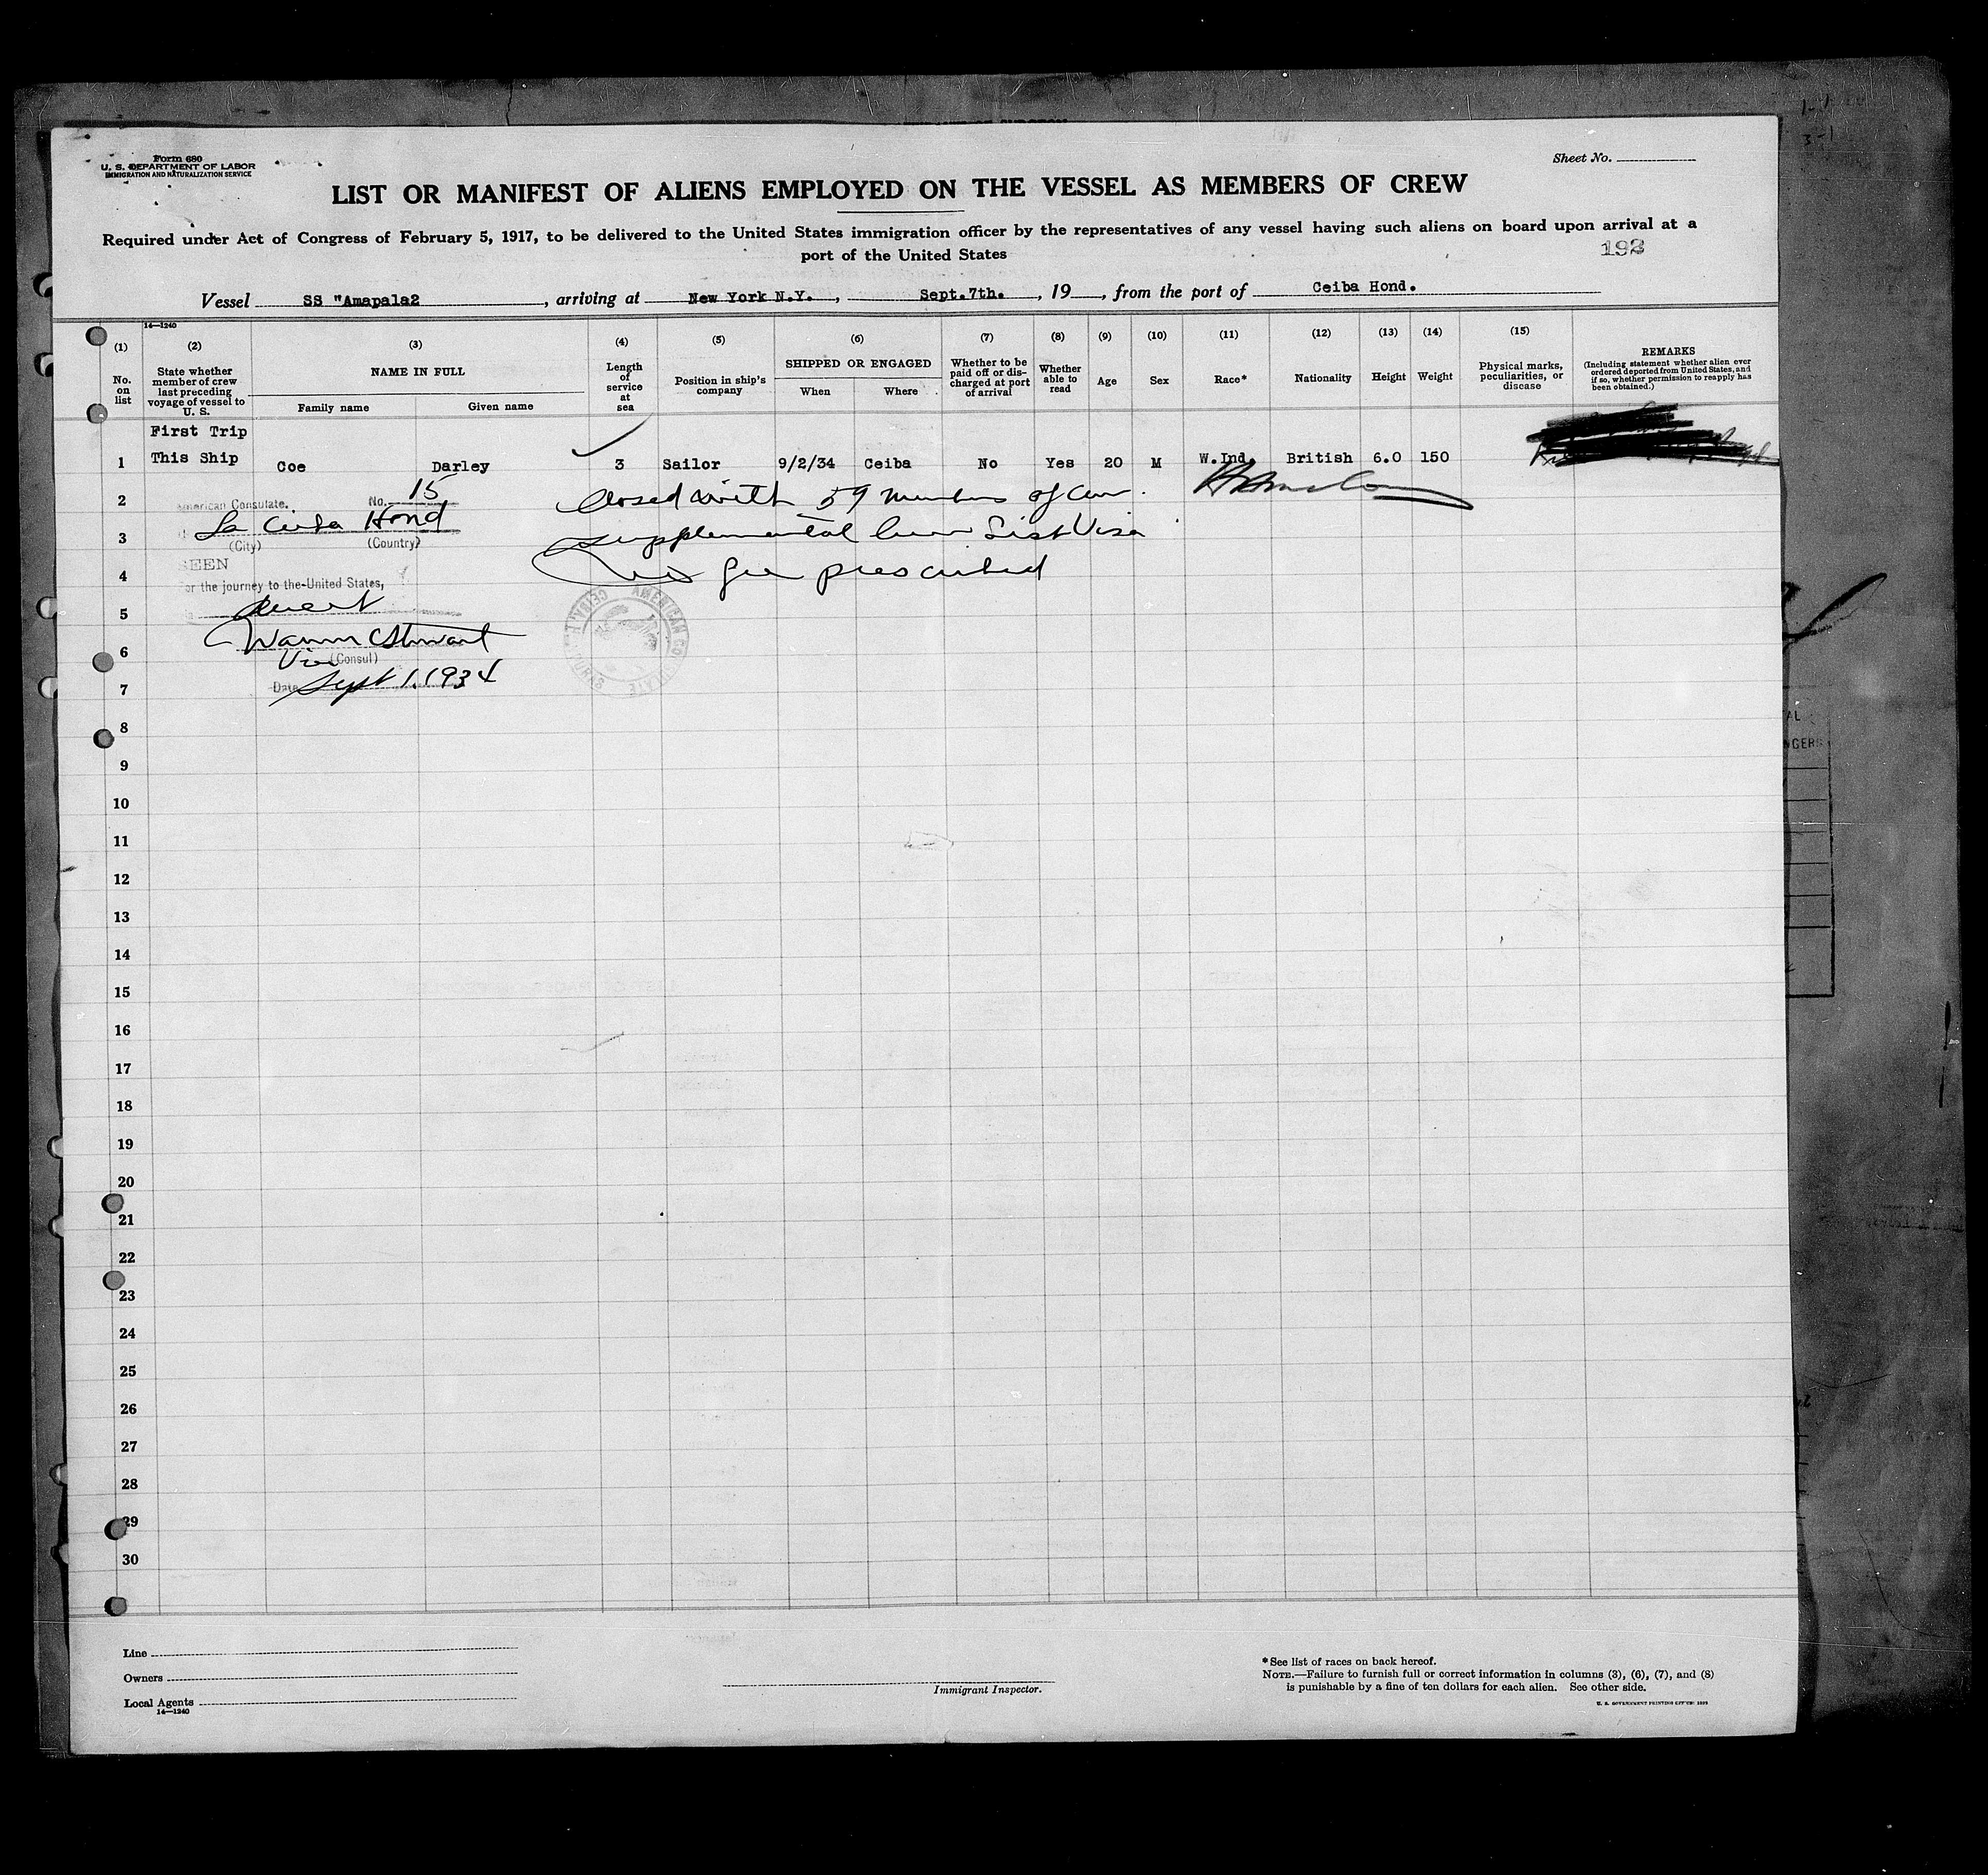 Form 680
U. S. DEPARTMENT OF LABOR
IMMIGRATION AND NATURALIZATION SERVICE
Sheet No.
LIST OR MANIFEST OF ALIENS EMPLOYED ON THE VESSEL AS MEMBERS OF CREW
Required under Act of Congress of February 5, 1917, to be delivered to the United States immigration officer by the representatives of any vessel having such aliens on board upon arrival at a
port of the United States
193
Vessel SS "Amapala2 , arriving at New York N.Y. , Sept.7th. , 19 , from the port of Ceiba Hond.
14—1240
(1) No. on list
(2) State whether member of crew last preceding voyage of vessel to U. S.
(3) NAME IN FULL
Family name Given name
(4) Length of service at sea
(5) Position in ship's company
(6) SHIPPED OR ENGAGED
When Where
(7) Whether to be paid off or discharged at port of arrival
(8) Whether able to read
(9) Age
(10) Sex
(11) Race*
(12) Nationality
(13) Height
(14) Weight
(15) Physical marks, peculiarities, or disease
REMARKS
(Including statement whether alien ever ordered deported from United States, and if so, whether permission to reapply has been obtained.)
First Trip
1 This Ship Coe Darley 3 Sailor 9/2/34 Ceiba No Yes 20 M W.Ind. British 6.0 150
2
American Consulate. No. 15
Closed with 59 members of crew.
La Ceiba Hond
3
(City) (Country)
supplemental Crew List Visa
SEEN
4
fee prescribed
For the journey to the United States,
5
AMERICAN CONSULATE
6
Warren C Stewart
Vice (Consul)
7
Date Sept 1, 1934
8
9
10
11
12
13
14
15
16
17
18
19
20
21
22
23
24
25
26
27
28
29
30
Line
Owners
Local Agents
14—1240
Immigrant Inspector.
*See list of races on back hereof.
NOTE.—Failure to furnish full or correct information in columns (3), (6), (7), and (8)
is punishable by a fine of ten dollars for each alien. See other side.